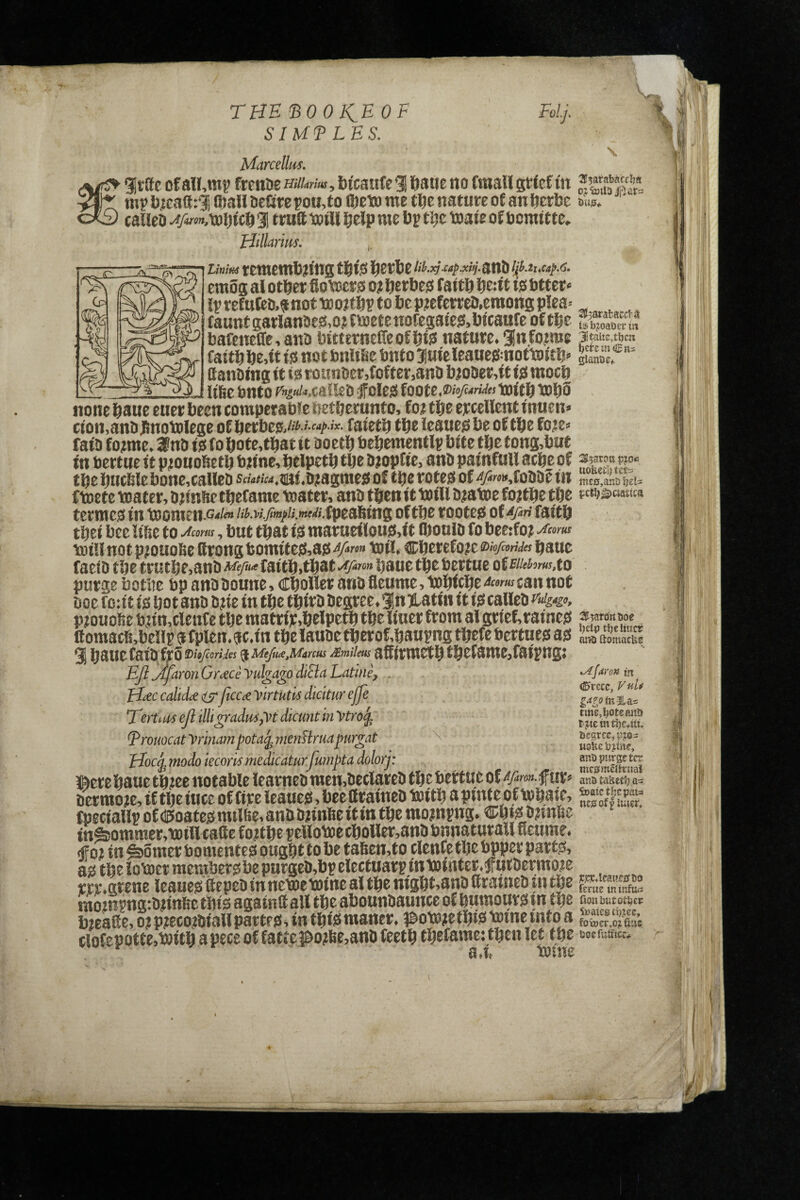 THE BOOKE OF
Folj.
SIMPLES.
Marcellus.
FIrste of all, my frende Hillarius, bicause I haue no small grief in
my breast: I shall desire you, to shew me the nature of an herbe
called Asaron, which I trust will help me by the waie of vomitte.
Azarabaccha
or wild Nar=
dus.
Hillarius.
Linius remembring this herbe lib.xj.cap.xiij. and lib.21.cap.6.
emõg al other flowers or herbes saith he: it is bitter=
ly refused, & not worthy to be preferred, emong plea=
saunt garlandes, or swete nosegaies, bicause of the
basenesse, and bitternesse of his nature. In forme
saith he, it is not vnlike vnto Iuie leaues: notwith=
standing it is rounder, softer, and broder, it is moch
like vnto Vngula, called Foles foote, Dioscarides with who
Azarabaccha
is broader in
Italie, then
here in En=
glande.
none haue euer been comperable hetherunto, for the excellent inuen=
cion, and knowlege of herbes, lib.i.cap.ix. saieth the leaues be of the fore=
said forme. And is so hote, that it doeth vehemently bite the tong, but
in vertue it prouoketh vrine, helpeth the dropsie, and painfull ache of
the huckle bone, called Sciatica. vi. dragmes of the rotes of Asaron, soddē in
swete water, drinke thesame water, and then it will drawe forthe the
termes in women. Galen lib.vi.simpli.medi. speaking of the rootes of Asari saith
Azaron pro=
uoketh ter=
mes, and hel=
peth Sciatica
thei bee like to Acorus, but that is marueilous, it should so bee: for Acorus
will not prouoke strong vomites, as Asaron wil. Therefore Dioscorides haue
saied the truthe, and Mesuæ saith, that Asaron haue the vertue of Elleborus, to
purge bothe vp and doune, Choller and fleume, whiche Acorus can not
doe so: it is hot and drie in the third degree. In Latin it is called Vulgago,
prouoke vrin, clense the matrix, helpeth the liuer from al grief, raines
stomach, belly & splen. &c. in the laude therof, hauyng these vertues as
I haue said frõ Dioscorides & Mesuæ, Marcus Æmileus affirmeth thesame, saiyng:
Azaron doe
help the liuer
and stomacke
Est Asaron Græce Vulgago dicta Latine,
Hæc calidæ & siccæ virtutis dicitur esse
Tertius est illi gradus, vt dicunt in vtroq;
Prouocat vrinam potaq; menstrua purgat
Hocq; modo iecoris medicatur sumpta dolorj:
Asaron in
Grece, Vul=
gago in La=
tine, hote and
drie in the .iii.
degree, pro=
uoke vrine,
and purge ter
mes mēstrual
and taketh a=
waie the pai=
nes of ẏ liuer.
Here haue three notable learned men, declared the vertue of Asaron. Fur=
dermore, if the iuce of fire leaues, bee strained with a pinte of whaie,
specially of Goates milke, and drinke it in the mornyng. This drinke
in Sommer, will caste forthe yellowe choller, and vnnaturall fleume.
For in Sõmer vomentes ought to be taken, to clense the vpper parts,
as the lower members be purged, by electuary in winter. Furdermore
xxx. grene leaues steped in newe wine al the night, and strained in the
mornyng: drinke this against all the aboundaunce of humours in the
breaste, or precordiall partes, in this maner. Powre this wine into a
close potte, with a pece of fatte Porke, and seeth thesame: then let the
xxx. leaues do
serue in infu=
sion but other
waies three,
fower, or fiue
doe suffice.
a.i. wine